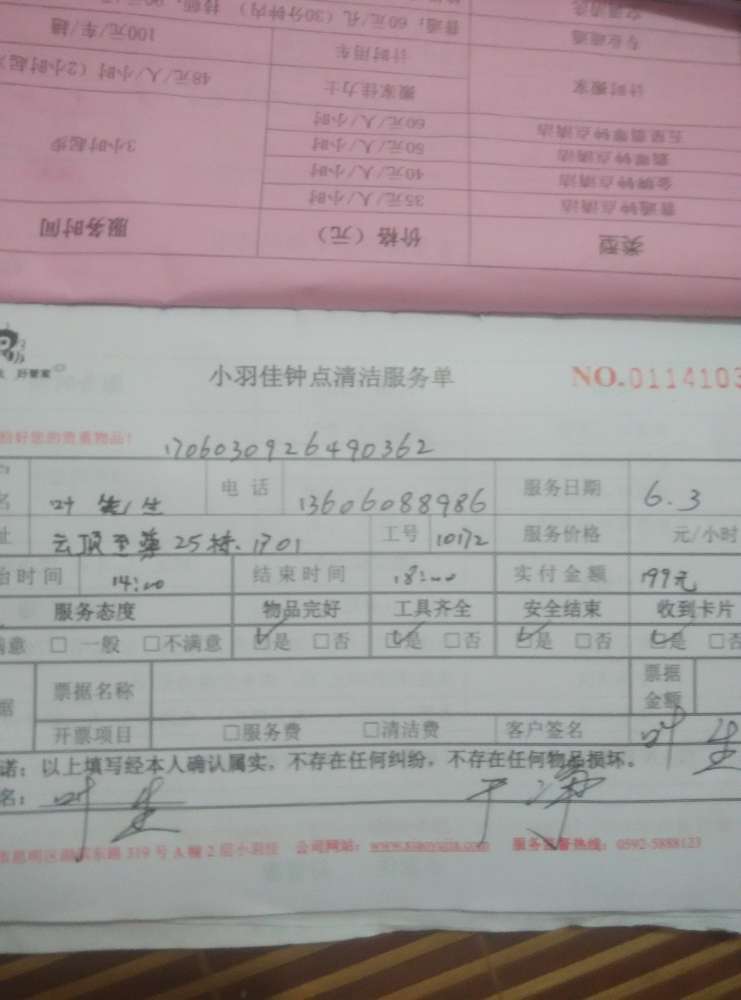 普通；60元/孔（30分钟内）
专业疏通
计时用车 100元/车/趟
计时搬家 搬家佳力士 48元/人/小时（2小时起）
五星翡翠钟点清洁 60元/人/小时
翡翠钟点清洁 50元/人/小时
金牌钟点清洁 40元/人/小时 3小时起步
普通钟点清洁 35元/人/小时
类型 价格（元） 服务时间
好管家
小羽佳钟点清洁服务单 NO.0114103
好您的贵重物品！
1706030926490362
名 叶先生 电话 13606088986 服务日期 6.3
址 云顶至尊25栋.1701 工号 10172 服务价格 元/小时
始时间 14:00 结束时间 18:00 实付金额 199元
服务态度 物品完好 工具齐全 安全结束 收到卡片
满意 □一般 □不满意 □是 □否 □是 □否 □是 □否 □是 □否
据 票据名称 票据金额
开票项目 □服务费 □清洁费 客户签名 叶生
诺：以上填写经本人确认属实，不存在任何纠纷，不存在任何物品损坏。
名：叶生 干净
思明区湖滨东路319号A幢2层小羽佳 公司网站：www.xiaoyujia.com 服务监督热线：0592-5888123